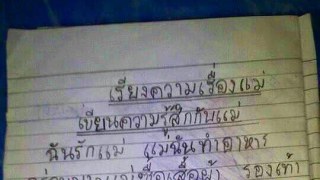 เรียงความเรื่องแม่
เขียนความรู้สึกกับแม่
ฉันรักแม่ แม่ฉันทำอาหาร
แม่ซื้อเสื้อผ้า รองเท้า